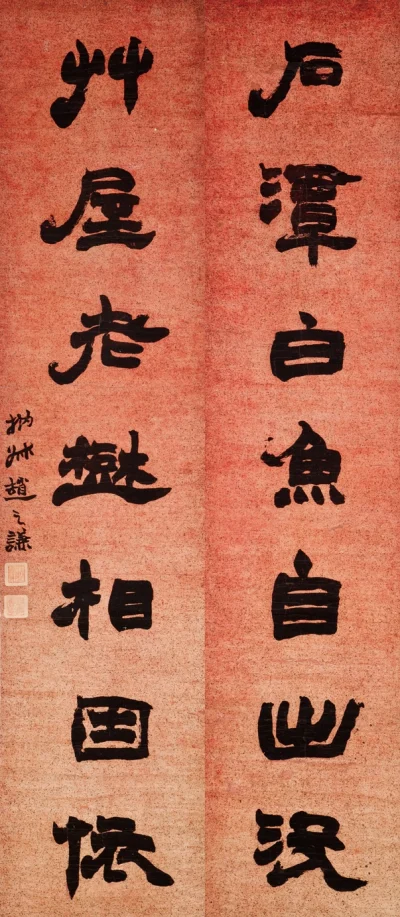 石潭白魚自出沒
艸屋老樹相因依
撝叔趙之謙